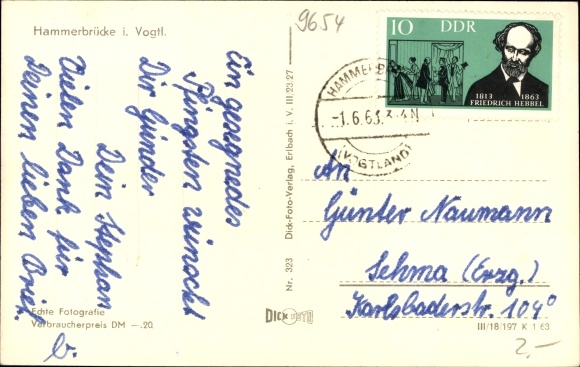 Hammerbrücke i. Vogtl.
Ein gesegnetes
Pfingsten wünscht
Dir Günder
Dein Stephan
Vielen Dank für
Deinen lieben Brief.
Echte Fotografie
Verbraucherpreis DM —.20
Nr. 323 Dick-Foto-Verlag, Erlbach i. V. III.23.27
DICK FOTO
9654
10 DDR
1813 1863
FRIEDRICH HEBBEL
HAMMERBR
-1.6.63.
(VOGTLAND)
An
Günter Naumann
Sehma (Erzg.)
Karlsbaderstr. 104
III/18/197 K 1 63
2,-